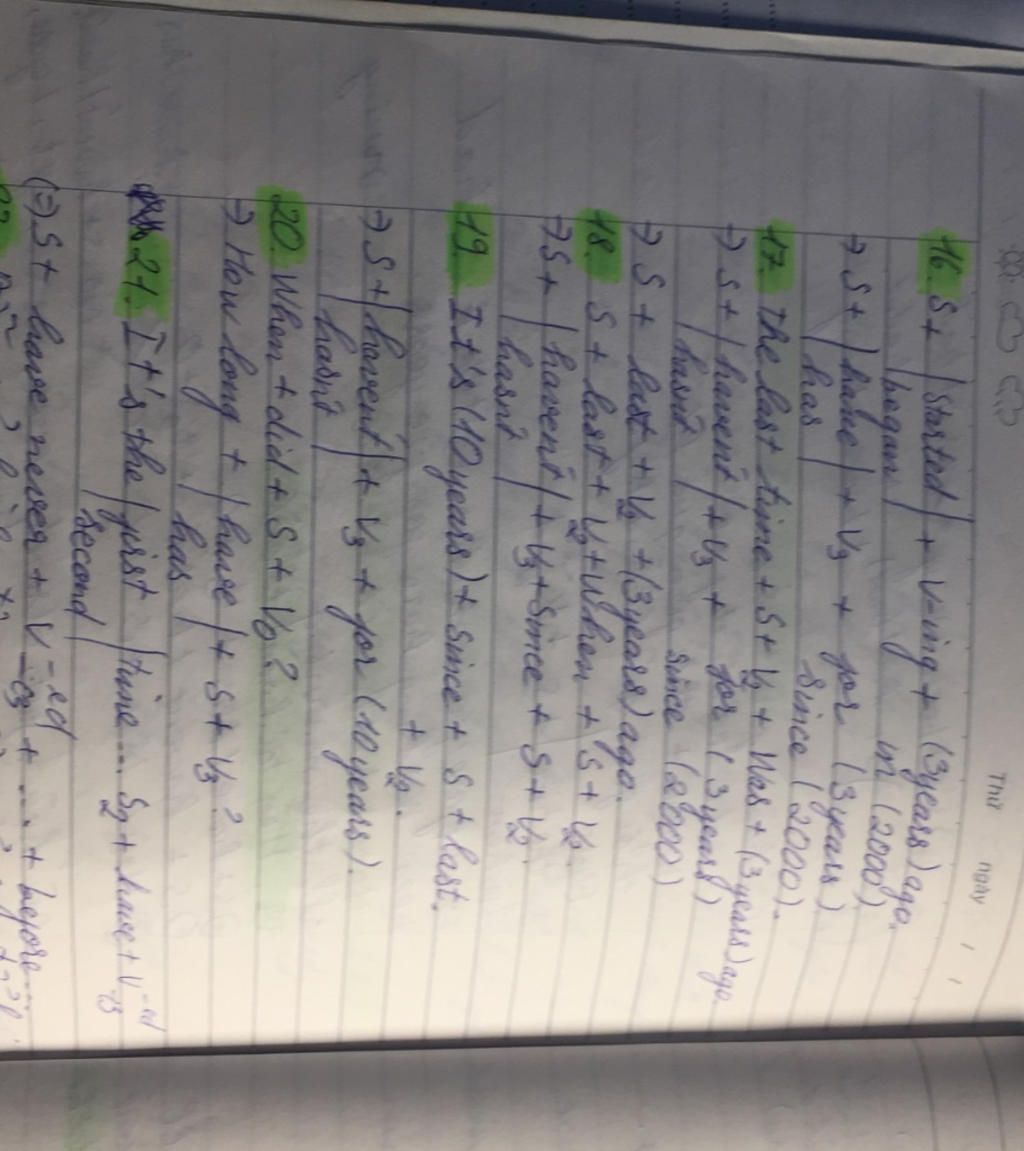 Thứ ngày / /
16. S + | started | + V-ing + (3 years) ago.
| began | in (2000)
→ S + | have | + V3 + for (3 years)
| has | since (2000).
17. The last time + S + V2 + Was + (3 years) ago
→ S + | haven't | + V3 + for (3 years)
| hasn't | since (2000)
→ S + last + V2 + (3 years) ago.
18. S + last + V2 + When + S + V2.
→ S + | haven't | + V3 + Since + S + V2.
| hasn't
19. It's (10 years) + since + S + last.
+ V2.
→ S + | haven't | + V3 + for (10 years).
| hasn't |
20. When + did + S + V0?
→ How long + | have | + S + V3?
| has |
21. It's the | first | time ... S2 + have + V-ed
-c3
| second |
(=) S + have never + V-ed
-c3 + .... + before...
22.